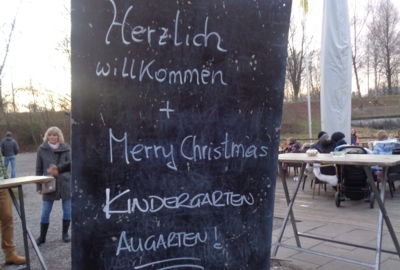 Herzlich
willkommen
+
Merry Christmas
KINDERGARTEN
AUGARTEN!